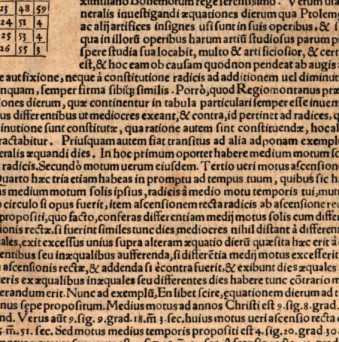 23 48 59
24 52 4
25 55 1
26 55 3
ximiliano Bohemorum rege serenissimo. Verum uta
neralis inuestigandi æquationes dierum qua Ptolemę
ac alij artifices insignes usi sunt in suis operibus, & I
qua in illorũ operibus harum artiũ studiosus parum p
spere studia sua locabit, multo & artificiosior, & cert
est, & hoc eam ob causam quod non pendeat ab augis a
e aut fixione, neque à constitutione radicis ad additionem uel diminut
nquam, semper firma sibiq; similis. Porrò, quod Regiomontanus præ
iones dierum, quæ continentur in tabula particulari semper esse inuen
us differentibus ut mediocres exeant, & contra, id pertinet ad radices, q
inutione sunt constitutæ, qua ratione autem sint constituendæ, hoc al
ractabitur. Priusquam autem fiat transitus ad alia adponam exempl
eralis æquandi dies. In hoc primum oportet habere medium motum so
radicis. Secundò motum uerum eiusdem. Tertio ueri motus ascension
Quarto hæc tria etiam habeas in promptu ad tempus tuum, quibus sic ha
is medium motum solis ipsius, radicis à medio motu temporis tui, mut
o circulo si opus fuerit, item ascensionem rectã radicis ab ascensione re
propositi, quo facto, conferas differentiam medij motus solis cum differ
ionis rectæ, si fuerint similes tunc dies, mediocres nihil distant à different
ales, exit excessus unius supra alteram æquatio dierũ quæsita hæc erit à
entibus seu inæqualibus aufferenda, si differētia medij motus excesserit
ascensionis rectæ, & addenda si ècontra fuerit, & exibunt dies æquales
eris ex æqualibus inæquales seu differentes dies habere tunc cõtrario m
erandum erit. Nunc ad exemplũ, En libet scire, æquationem dierum ad t
nus sępe propositum. Medius motus ad annos Christi est 9. sig. 8. grad.
nd. Verus aũt 9. sig. 9. grad. 18. m̃ 3. sec. huius motus ueri ascensio recta
5. m̃. 51. sec. Sed motus medius temporis propositi est 4. sig. 10. grad 30